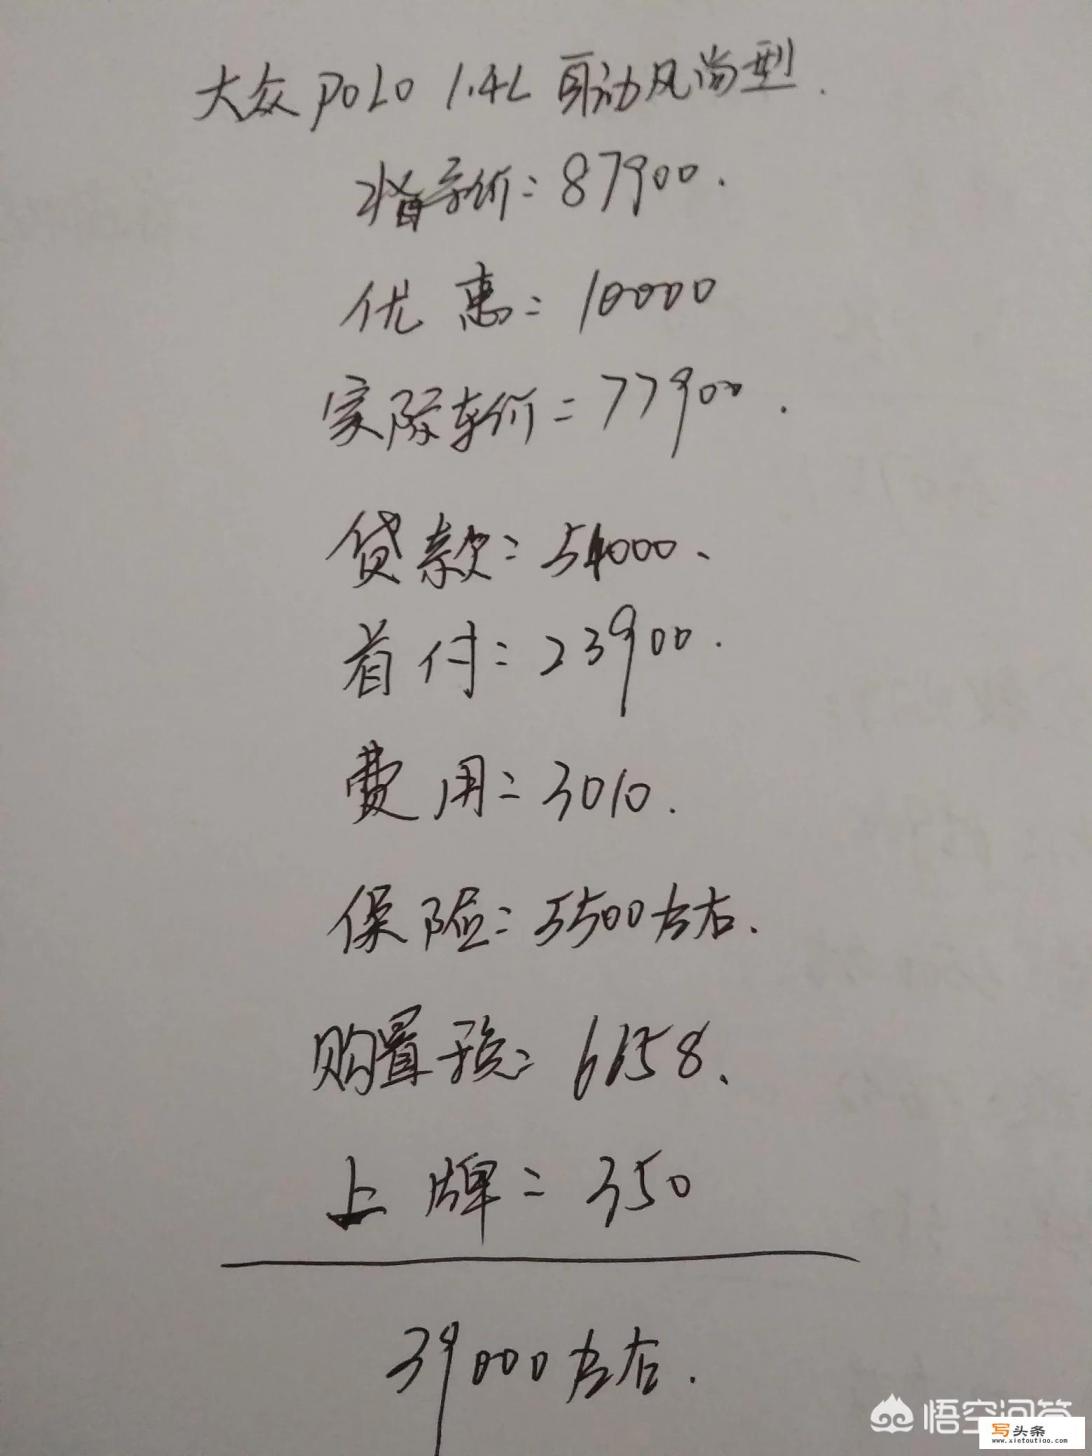 大众POLO 1.4L 自动风尚型.
指导价:87900.
优惠:10000
实际车价=77900.
贷款:54000、
首付:23900.
费用:3010.
保险:5500左右.
购置税:6658、
上牌:350
39000左右.
悟空问答
写头条
www.xietoutiao.com